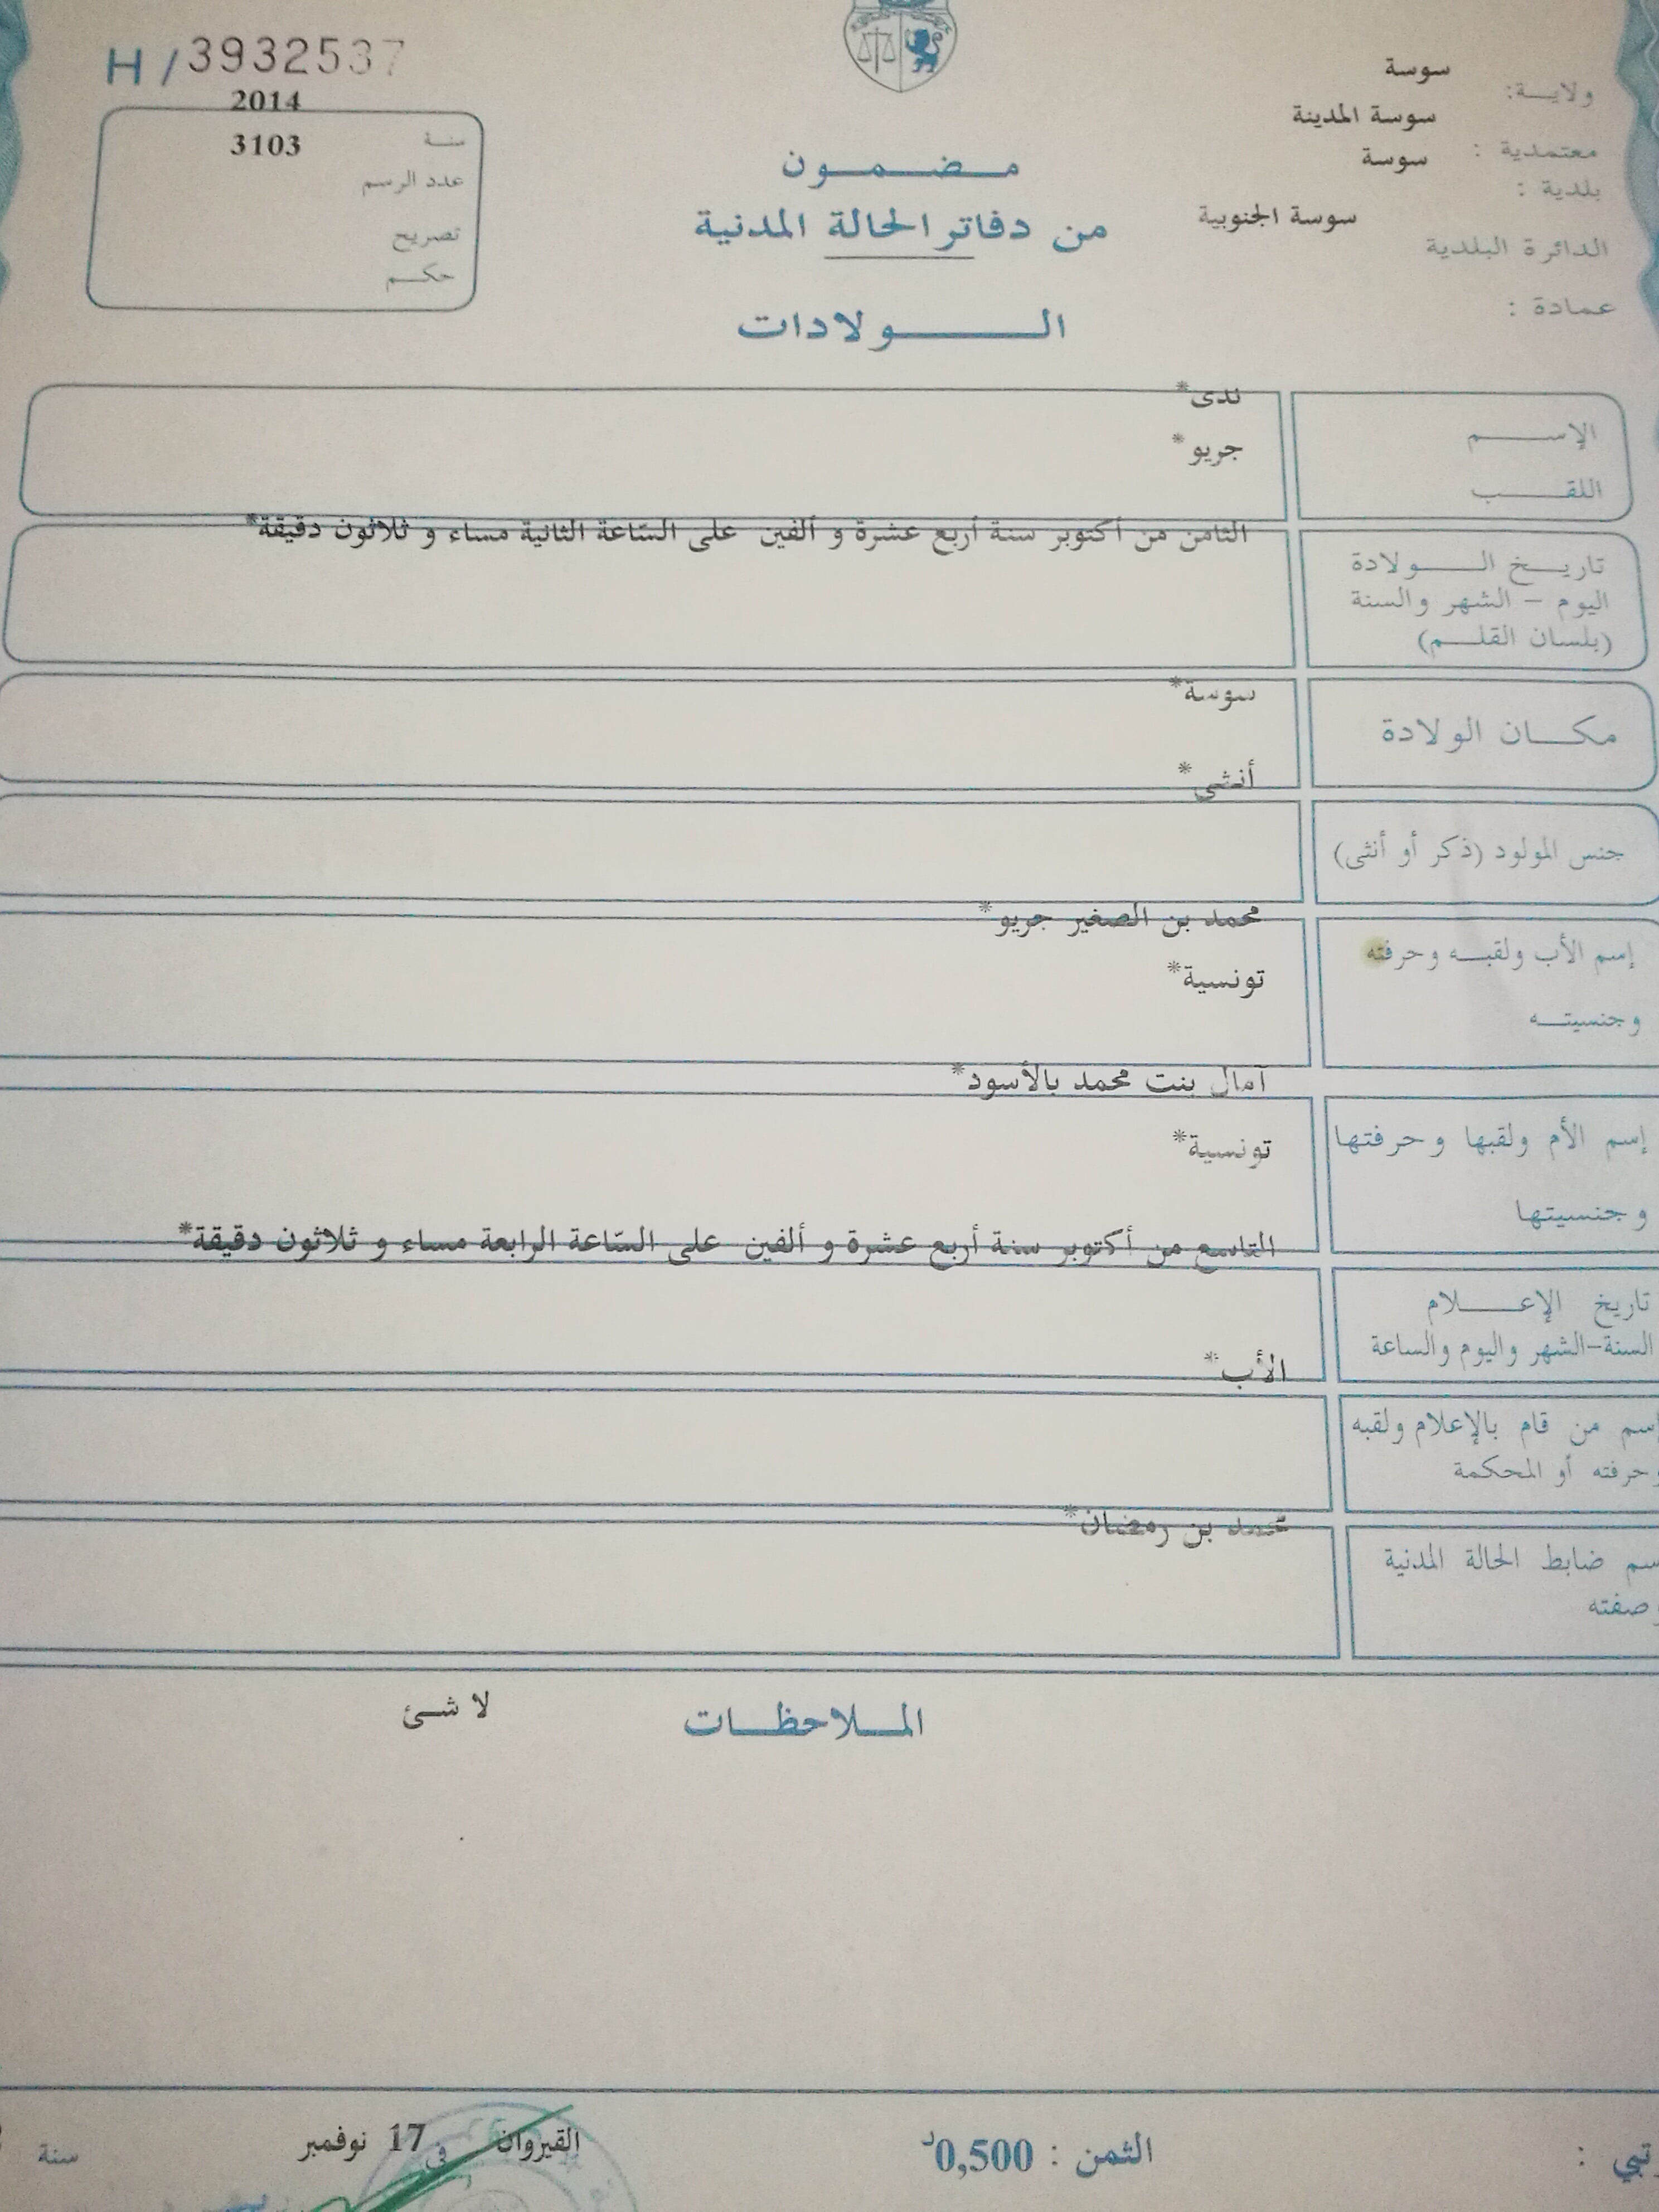 H / 3932537
ولايـــة: سوسة
معتمدية : سوسة المدينة
بلدية : سوسة
الدائرة البلدية سوسة الجنوبية
عمادة :
سنـة 2014
عدد الرسم 3103
تصريح
حكـم
مـضـمـون
من دفاتر الحالة المدنية
الـولادات
الإســـم ندى*
اللقـــب جريو*
تاريـخ الــولادة الثامن من أكتوبر سنة أربع عشرة و ألفين على السّاعة الثانية مساء و ثلاثون دقيقة*
اليوم – الشهر والسنة
(بلسان القلــم)
مكــان الولادة سوسة*
أنثى*
جنس المولود (ذكر أو أنثى)
إسم الأب ولقبــه وحرفته محمد بن الصغير جريو*
وجنسيتــه تونسية*
آمال بنت محمد بالأسود*
إسم الأم ولقبها وحرفتها
تونسية*
وجنسيتها
التاسع من أكتوبر سنة أربع عشرة و ألفين على السّاعة الرابعة مساء و ثلاثون دقيقة*
تاريخ الإعـــلام
السنة-الشهر واليوم والساعة
الأب*
إسم من قام بالإعلام ولقبه
وحرفته أو المحكمة
محمد بن رمضان*
سم ضابط الحالة المدنية
وصفته
الملاحظـات لا شئ
الثمن : 0,500د
القيروان في 17 نوفمبر سنة